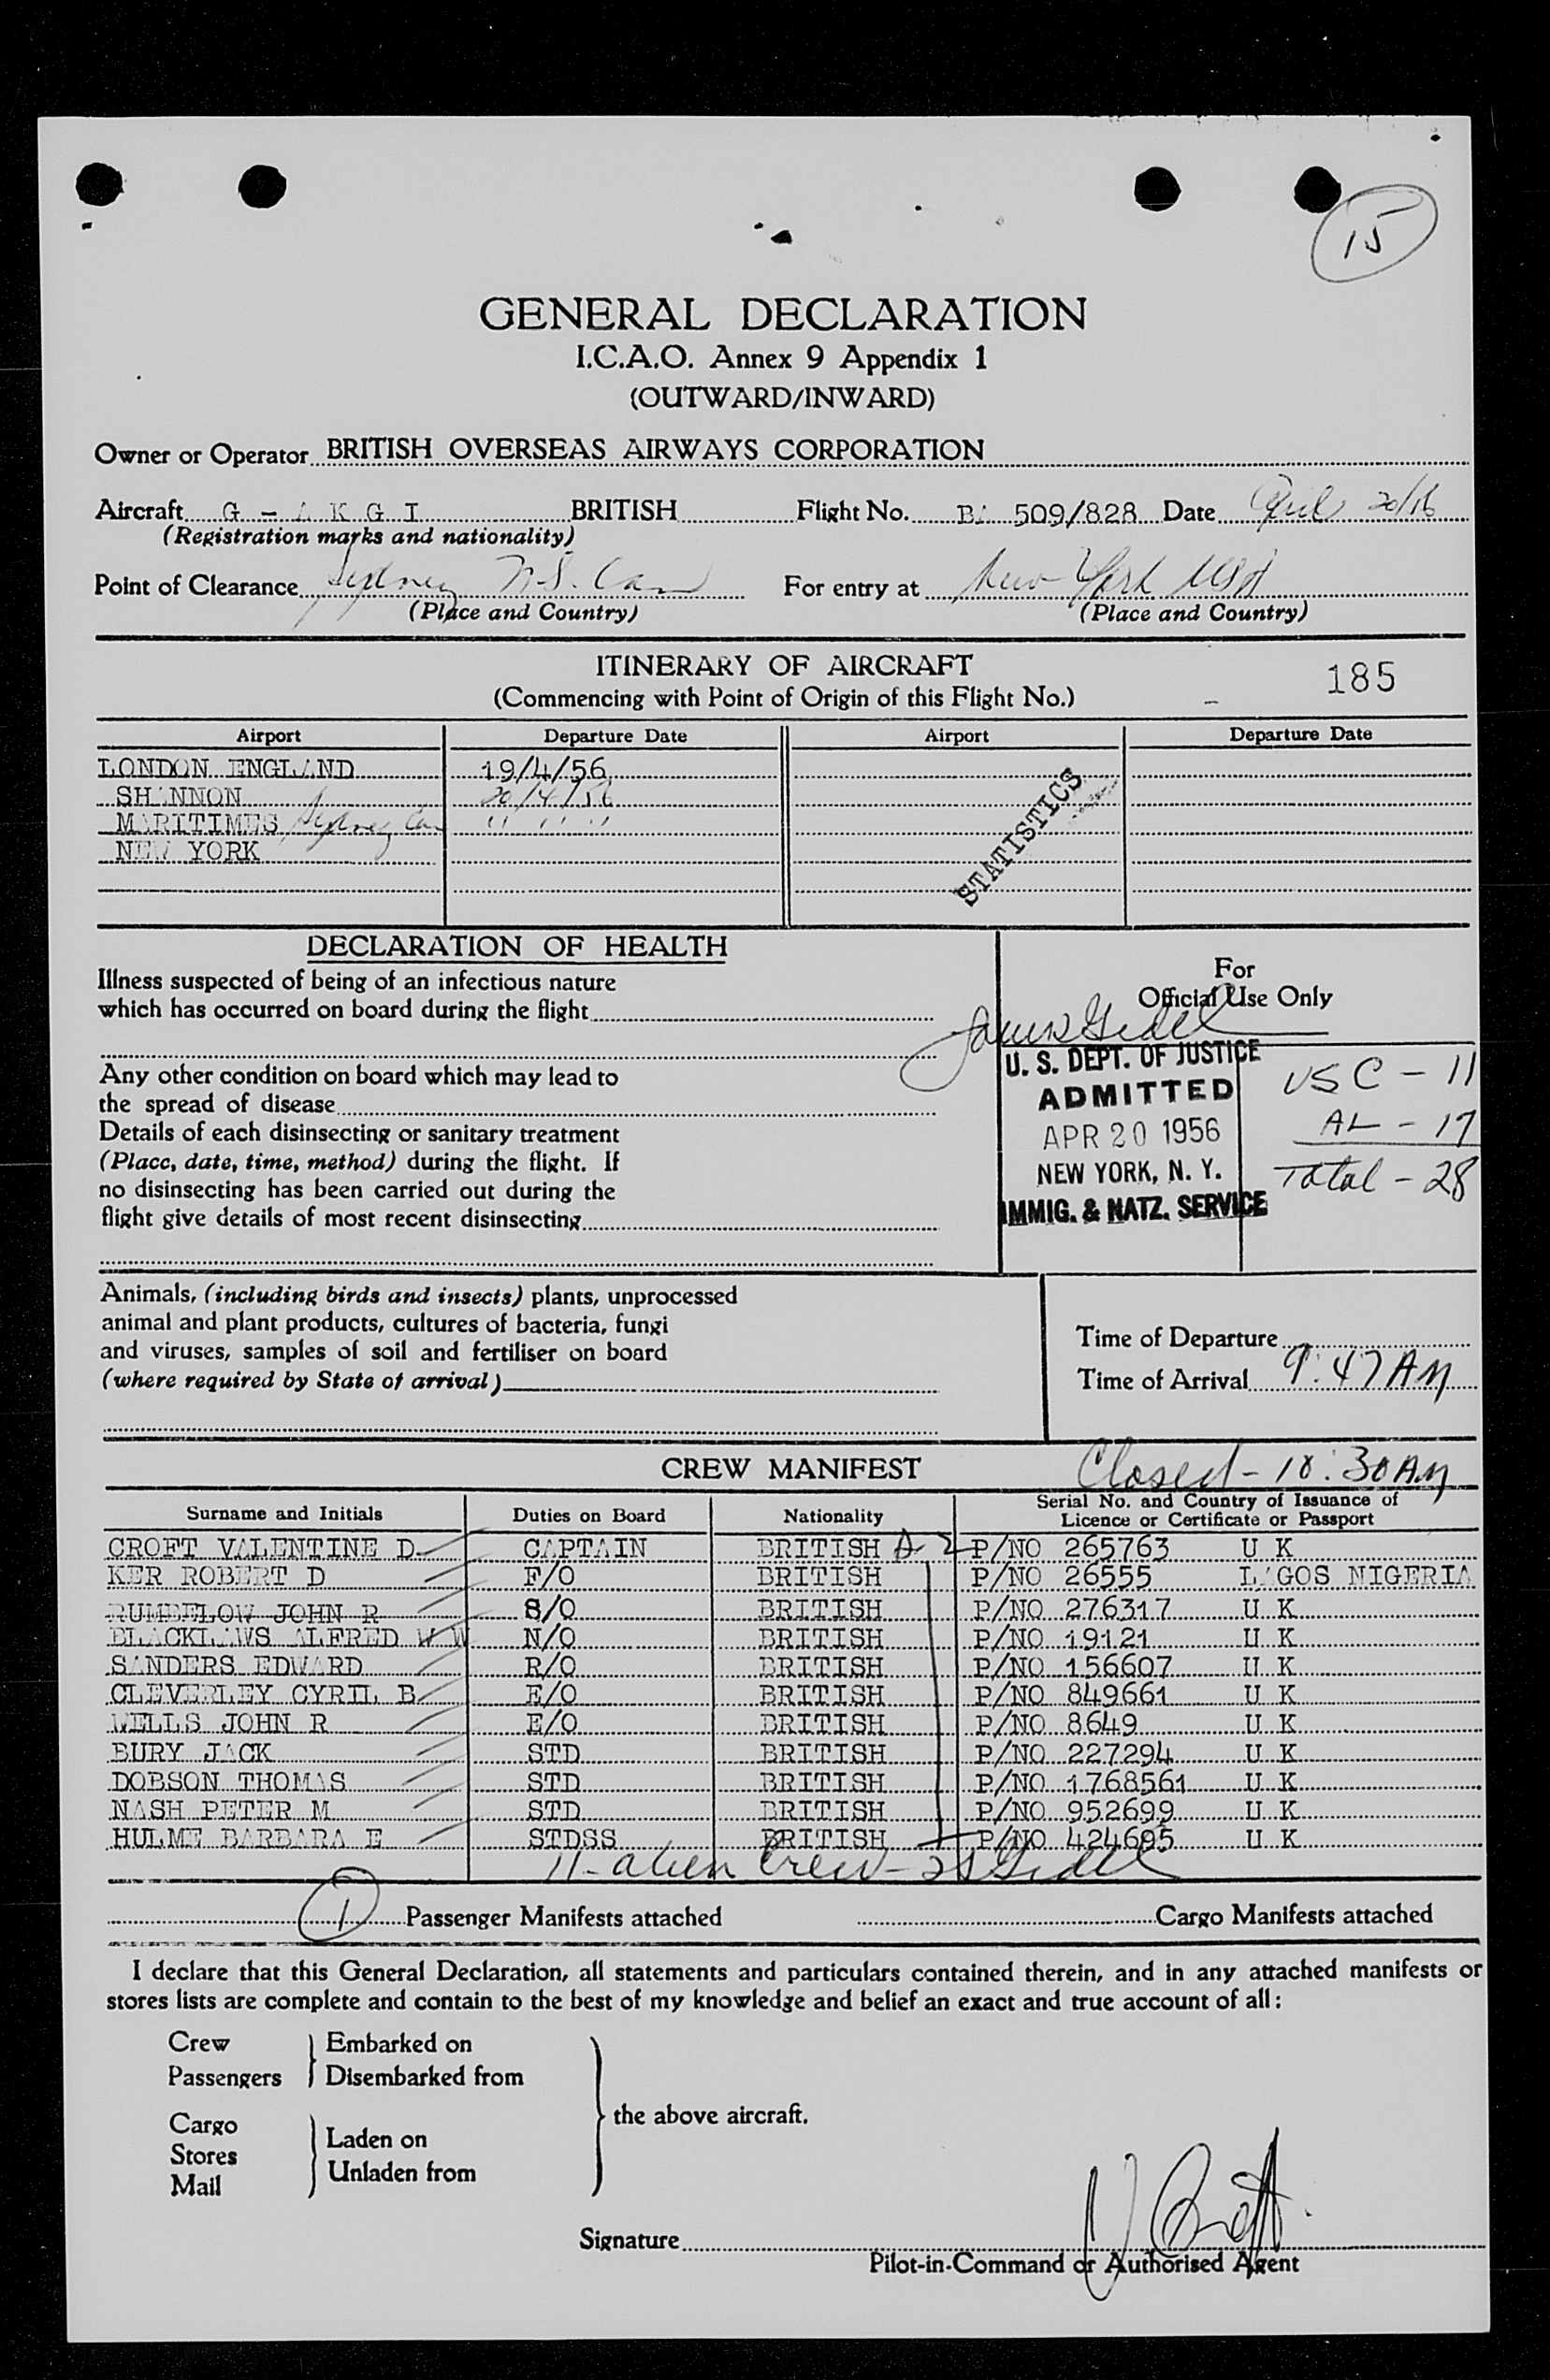 15
GENERAL DECLARATION
I.C.A.O. Annex 9 Appendix 1
(OUTWARD/INWARD)
Owner or Operator BRITISH OVERSEAS AIRWAYS CORPORATION
Aircraft G - A K G I BRITISH Flight No. BA 509/828 Date April 20/56
(Registration marks and nationality)
Point of Clearance Sydney N.S. Can For entry at New York USA
(Place and Country) (Place and Country)
ITINERARY OF AIRCRAFT
(Commencing with Point of Origin of this Flight No.) 185
Airport Departure Date Airport Departure Date
LONDON ENGLAND 19/4/56
SHANNON 20/4/56
MARITIMES Sydney Can " " "
NEW YORK
STATISTICS
DECLARATION OF HEALTH
Illness suspected of being of an infectious nature
which has occurred on board during the flight
Any other condition on board which may lead to
the spread of disease
Details of each disinsecting or sanitary treatment
(Place, date, time, method) during the flight. If
no disinsecting has been carried out during the
flight give details of most recent disinsecting
For
Official Use Only
U. S. DEPT. OF JUSTICE
ADMITTED
APR 20 1956
NEW YORK, N. Y.
IMMIG. & NATZ. SERVICE
USC - 11
AL - 17
Total - 28
Animals, (including birds and insects) plants, unprocessed
animal and plant products, cultures of bacteria, fungi
and viruses, samples of soil and fertiliser on board
(where required by State of arrival)
Time of Departure
Time of Arrival 9:47 AM
CREW MANIFEST Closed - 10:30 AM
Surname and Initials Duties on Board Nationality Serial No. and Country of Issuance of Licence or Certificate or Passport
CROFT VALENTINE D CAPTAIN BRITISH D-2 P/NO 265763 U K
KER ROBERT D F/O BRITISH P/NO 26555 LAGOS NIGERIA
RUMBELOW JOHN R S/O BRITISH P/NO 276317 U K
BLACKLAWS ALFRED W W N/O BRITISH P/NO 19121 U K
SANDERS EDWARD R/O BRITISH P/NO 156607 U K
CLEVERLEY CYRIL B E/O BRITISH P/NO 849661 U K
WELLS JOHN R E/O BRITISH P/NO 8649 U K
BURY JACK STD BRITISH P/NO 227294 U K
DOBSON THOMAS STD BRITISH P/NO 1768561 U K
NASH PETER M STD BRITISH P/NO 952699 U K
HULME BARBARA E STDSS BRITISH P/NO 424695 U K
11 - alien Crew -
1 Passenger Manifests attached Cargo Manifests attached
I declare that this General Declaration, all statements and particulars contained therein, and in any attached manifests or
stores lists are complete and contain to the best of my knowledge and belief an exact and true account of all:
Crew Embarked on
Passengers Disembarked from
the above aircraft.
Cargo Laden on
Stores Unladen from
Mail
Signature
Pilot-in-Command or Authorised Agent